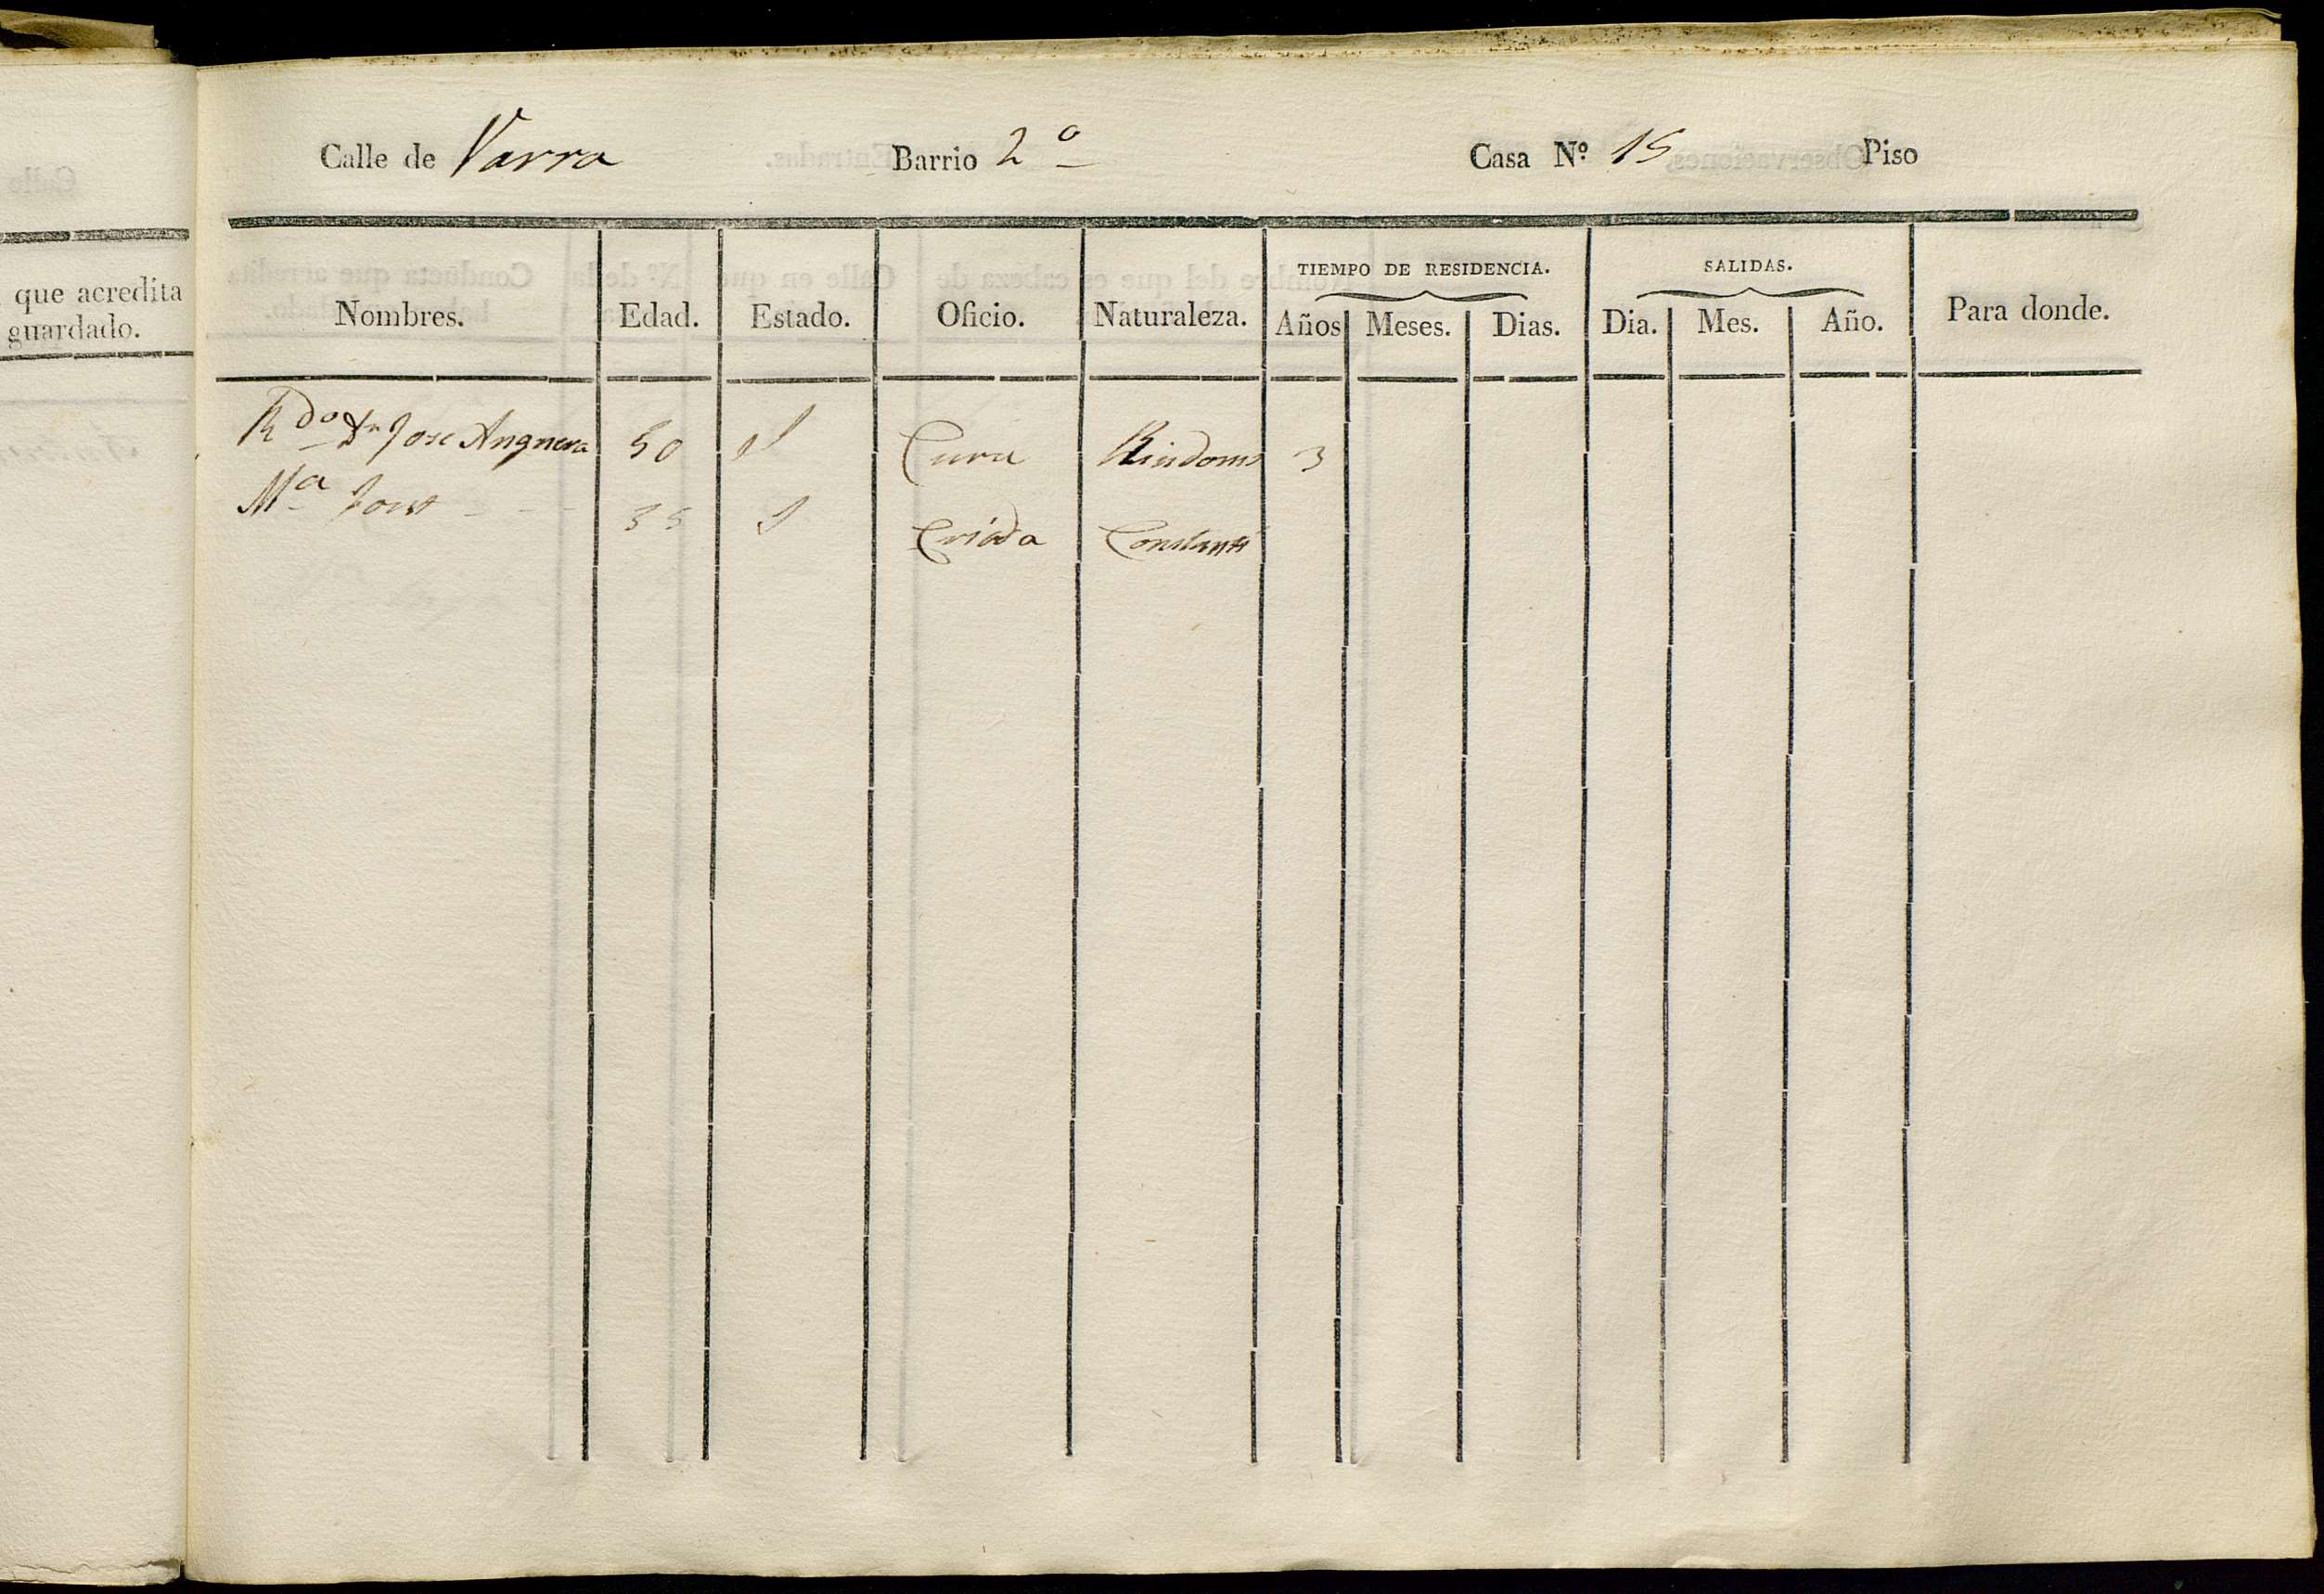 Calle de Varra Barrio 2º Casa Nº 15 Piso
que acredita
guardado.
TIEMPO DE RESIDENCIA. SALIDAS.
Nombres. Edad. Estado. Oficio. Naturaleza. Años Meses. Dias. Dia. Mes. Año. Para donde.
Rdo Dn Jose Anguera 50 S Cura Riudoms 3
Ma Font 35 S Criada Constanti